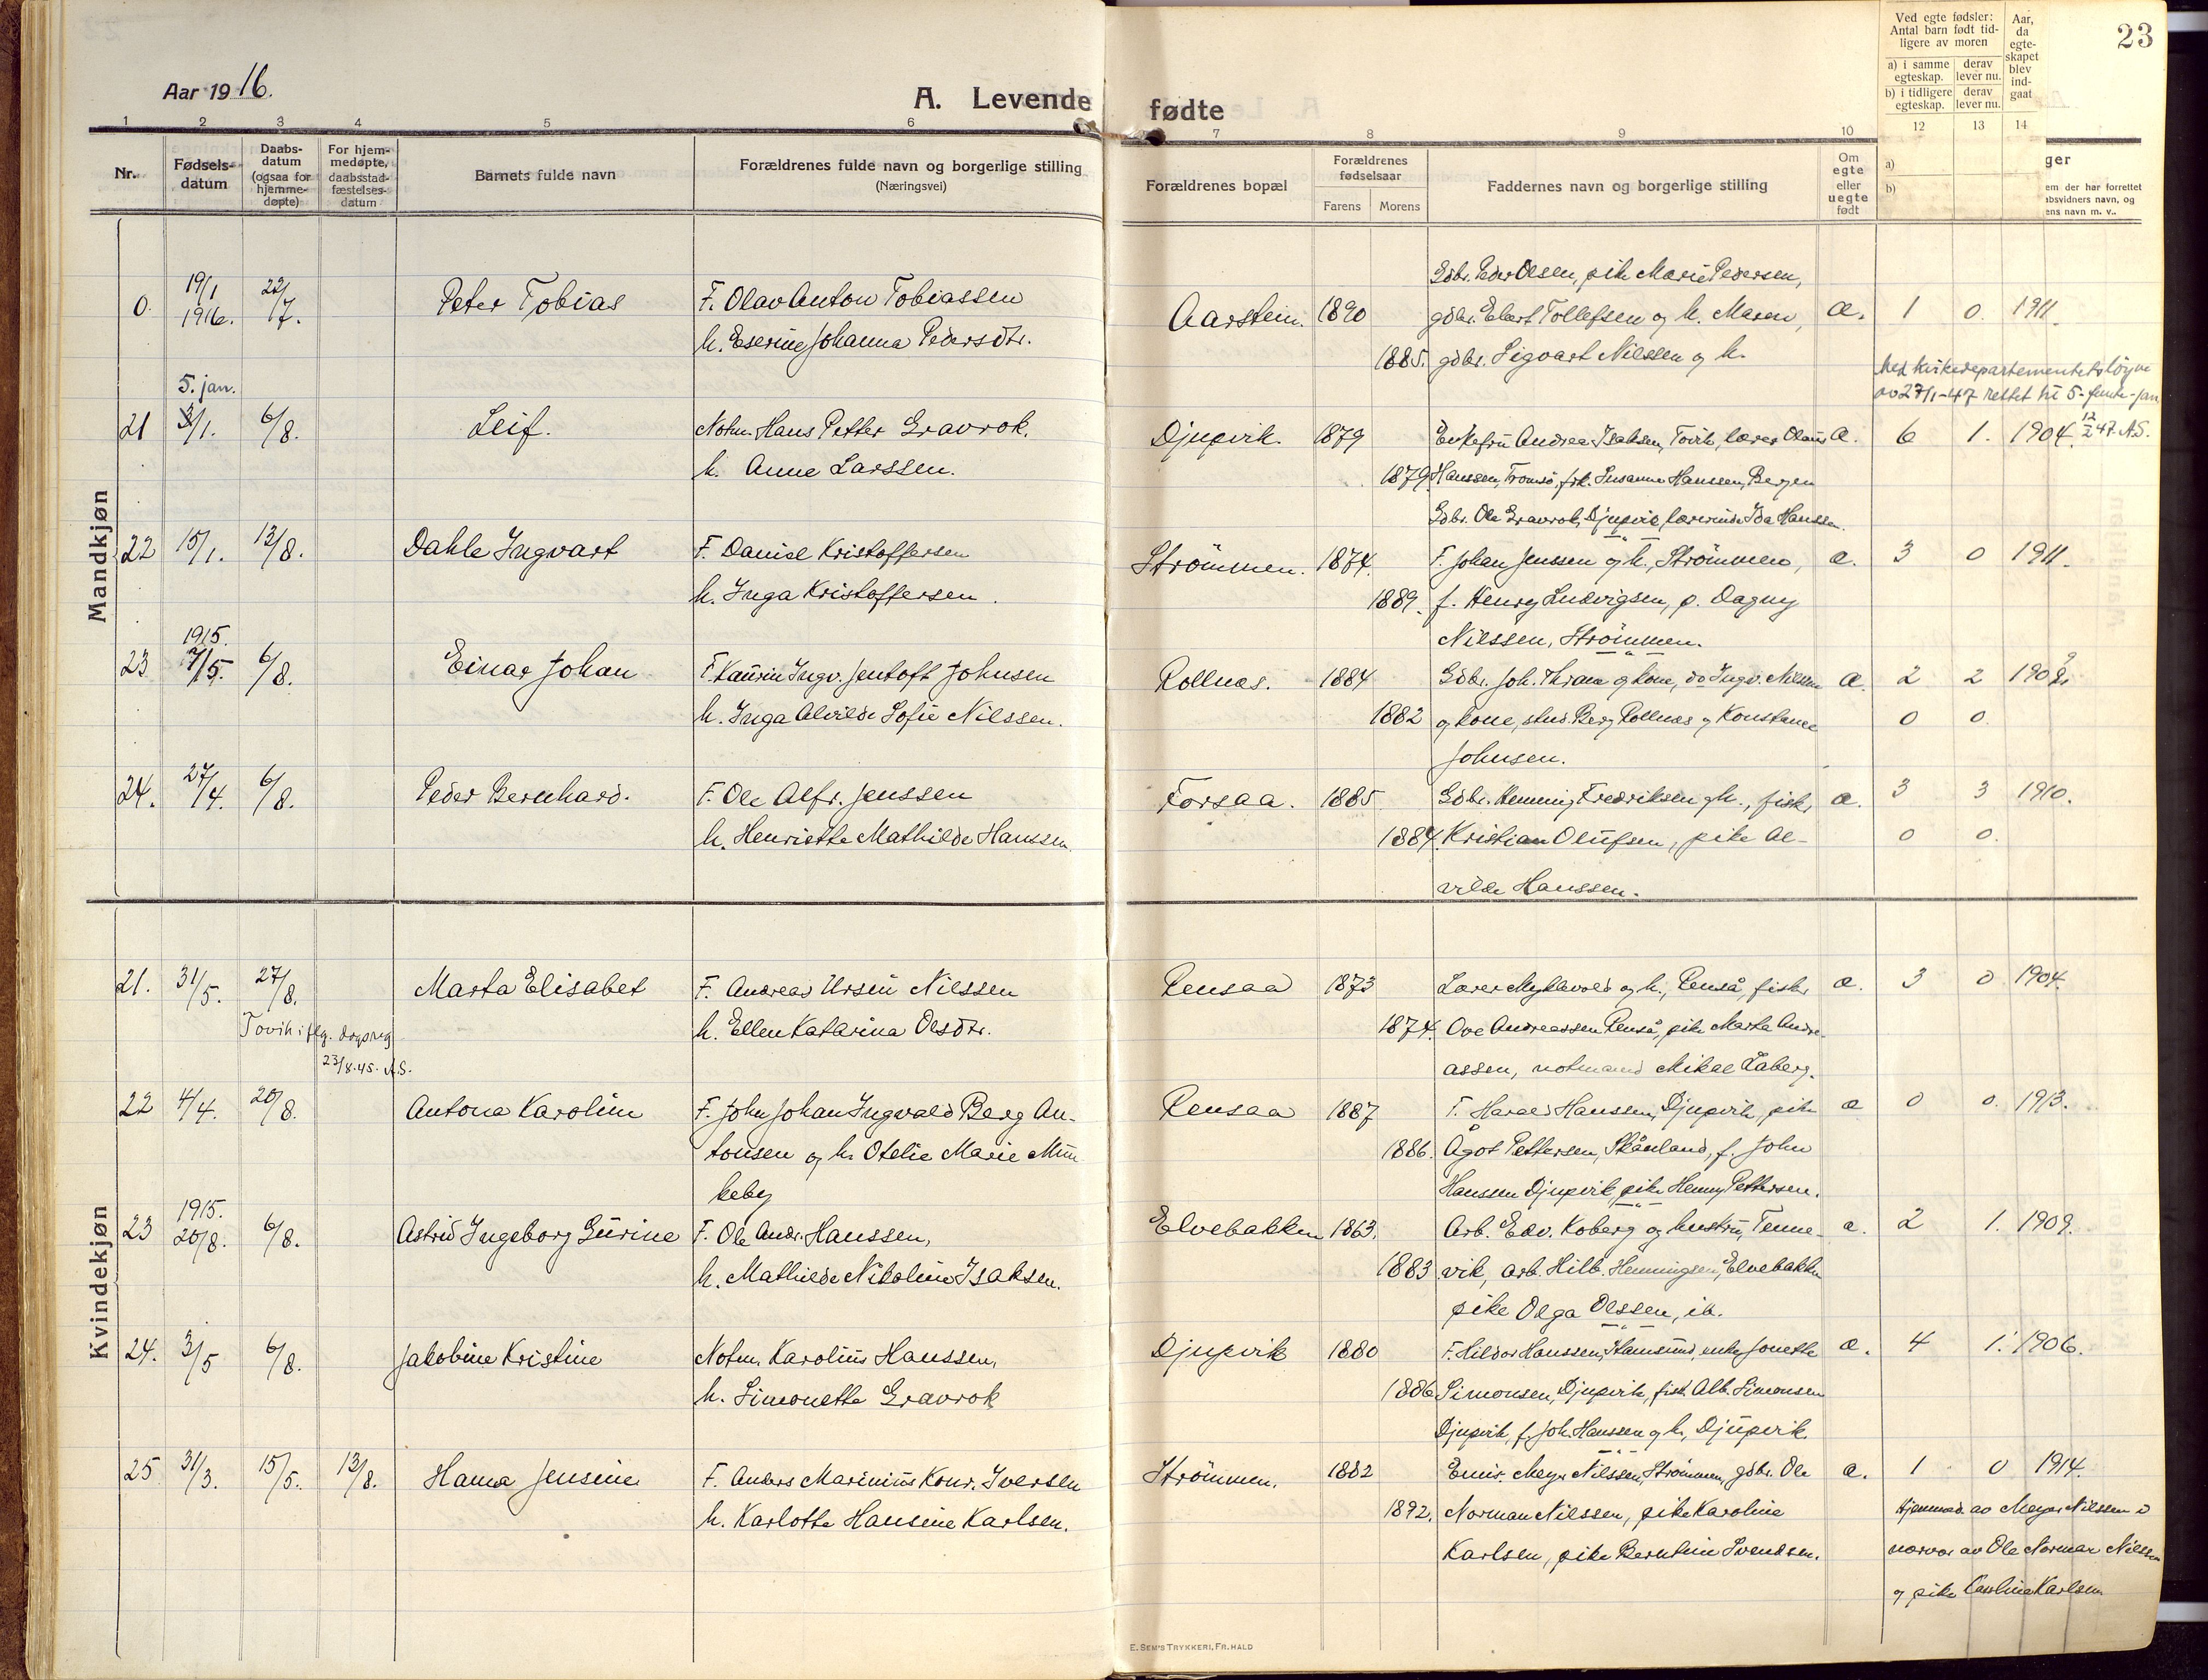 Aar 1916.
A. Levende fødte
23
1 2 3 4 5 6 7 8 9 10 12 13 14
Nr.
Fødselsdatum
Daabsdatum (ogsaa for hjemmedøpte)
For hjemmedøpte, daabsstadfæstelsesdatum
Barnets fulde navn
Forældrenes fulde navn og borgerlige stilling
(Næringsvei)
Forældrenes bopæl
Forældrenes fødselsaar
Farens Morens
Faddernes navn og borgerlige stilling
Om egte eller uegte født
Ved egte fødsler: Antal barn født tidligere av moren
a) i samme egteskap. derav lever nu.
b) i tidligere egteskap. derav lever nu.
Aar, da egteskapet blev indgaat
a)
b)
ger
em der har forrettet
absvidners navn, og
ens navn m. v..
Mandkjøn
0. 19/1 1916. 22/7. Peter Tobias F. Olav Anton Tobiassen Aarstein. 1890 Gdbr. Peder Olsen, pike Marie Pedersen,
h. Eserine Johanna Pedersdtr. 1885. gdbr. Elert Tollefsen og h. Maren, æ. 1 0. 1911.
gdbr. Sigvart Nilssen og h.
5. jan.
Med kirkedepartementets
av 27/1-47 rettet til 5-femte-jan
12/2 47. A.S.
21 3/1. 6/8. Leif. Notm. Hans Petter Gravrok. Djupvik. 1879 Enkefru Andrea Isaksen, Tovik, lærer Olaus æ. 6 1. 1904.
h. Anne Larssen. 1879. Hanssen, Tromsø, frk. Susanne Hanssen, Bergen
Gdbr. Ole Gravrok, Djupvik, lærerinde Ida Hanssen.
22 15/1. 13/8. Dahle Ingvart F. Daniel Kristoffersen Strömmen. 1874. F. Johan Jenssen og h., Strömmen, æ. 3 0 1911.
h. Inga Kristoffersen. 1889. f. Henry Ludvigsen, p. Dagny
Nilssen, Strömmen.
23 1915. 7/5. 6/8. Einar Johan F. Laurin Ingv. Jentoft Johnsen Rollnes. 1884 Gdbr. Joh. Thrane og kone, do Ingv. Nilssen æ. 2 2 1909
h. Inga Alvilde Sofie Nilssen. 1882 og kone, stud. Berg Rollnes og Konstance 0 0.
Johnsen.
24. 27/4. 6/8. Peder Bernhard. F. Ole Alfr. Jenssen Forsaa. 1885 Gdbr. Henning Fredriksen og h., fisk. æ. 3 3 1910.
h. Henriette Mathilde Hanssen. 1884. Kristian Olufsen, pike Al- 0 0.
vilde Hanssen.
Kvindekjøn
21. 31/5. 27/8. Marta Elisabet F. Andreas Ursin Nilssen Rensaa 1873 Lærer Myklevold og h., Renså, fisker æ. 3 0 1904.
Tovik i flg. dagsreg 23/8.45. A.S.
h. Ellen Katarina Olsdtr. 1874. Ove Andreassen Renså, pike Marta Andre-
assen, notmand Mikal Laberg.
22 4/4. 20/8. Antona Karoline F. John Johan Ingvald Berg An- Rensaa 1887 F. Harald Hanssen, Djupvik, pike æ 0 0. 1913.
tonsen og h. Otelie Marie Mun 1886. Ågot Pettersen, Skånland, f. John
keby Hanssen Djupvik, pike Henny Pettersen.
23 1915. 20/8. 6/8. Astrid Ingeborg Gurine F. Ole Andr. Hanssen, Elvebakken 1863. Arb. Edv. Koberg og hustru, Tenne- æ. 2 1. 1909.
h. Mathilde Nikoline Isaksen. 1883 vik, arb. Hilb. Henningsen, Elvebakken
pike Olga Olssen, ib.
24. 3/5 6/8. Jakobine Kristine Notm. Karolius Hanssen, Djupvik 1880 F. Hildor Hanssen, Stamsund, enke Jonette æ. 4 1. 1906.
h. Simonette Gravrok 1886 Simonsen, Djupvik, fisk. Alb. Simonsen
Djupvik, f. Joh. Hanssen og h., Djupvik.
25 31/3. 15/5. 13/8. Hanna Jensine F. Anders Marinius Konr. Iversen Strömmen. 1882 Emis. Meyer Nilssen, Strömmen, gdbr. Ole æ. 1 0 1914.
h. Karlotte Hansine Karlsen. 1892. Norman Nilssen, pike Karoline Hjemmed. av Meyer Nilssen i
Karlsen, pike Berntine Svendsen. nærvær av Ole Norman Nilssen
og pike Caroline Karlsen
E. SEM'S TRYKKERI, FR. HALD